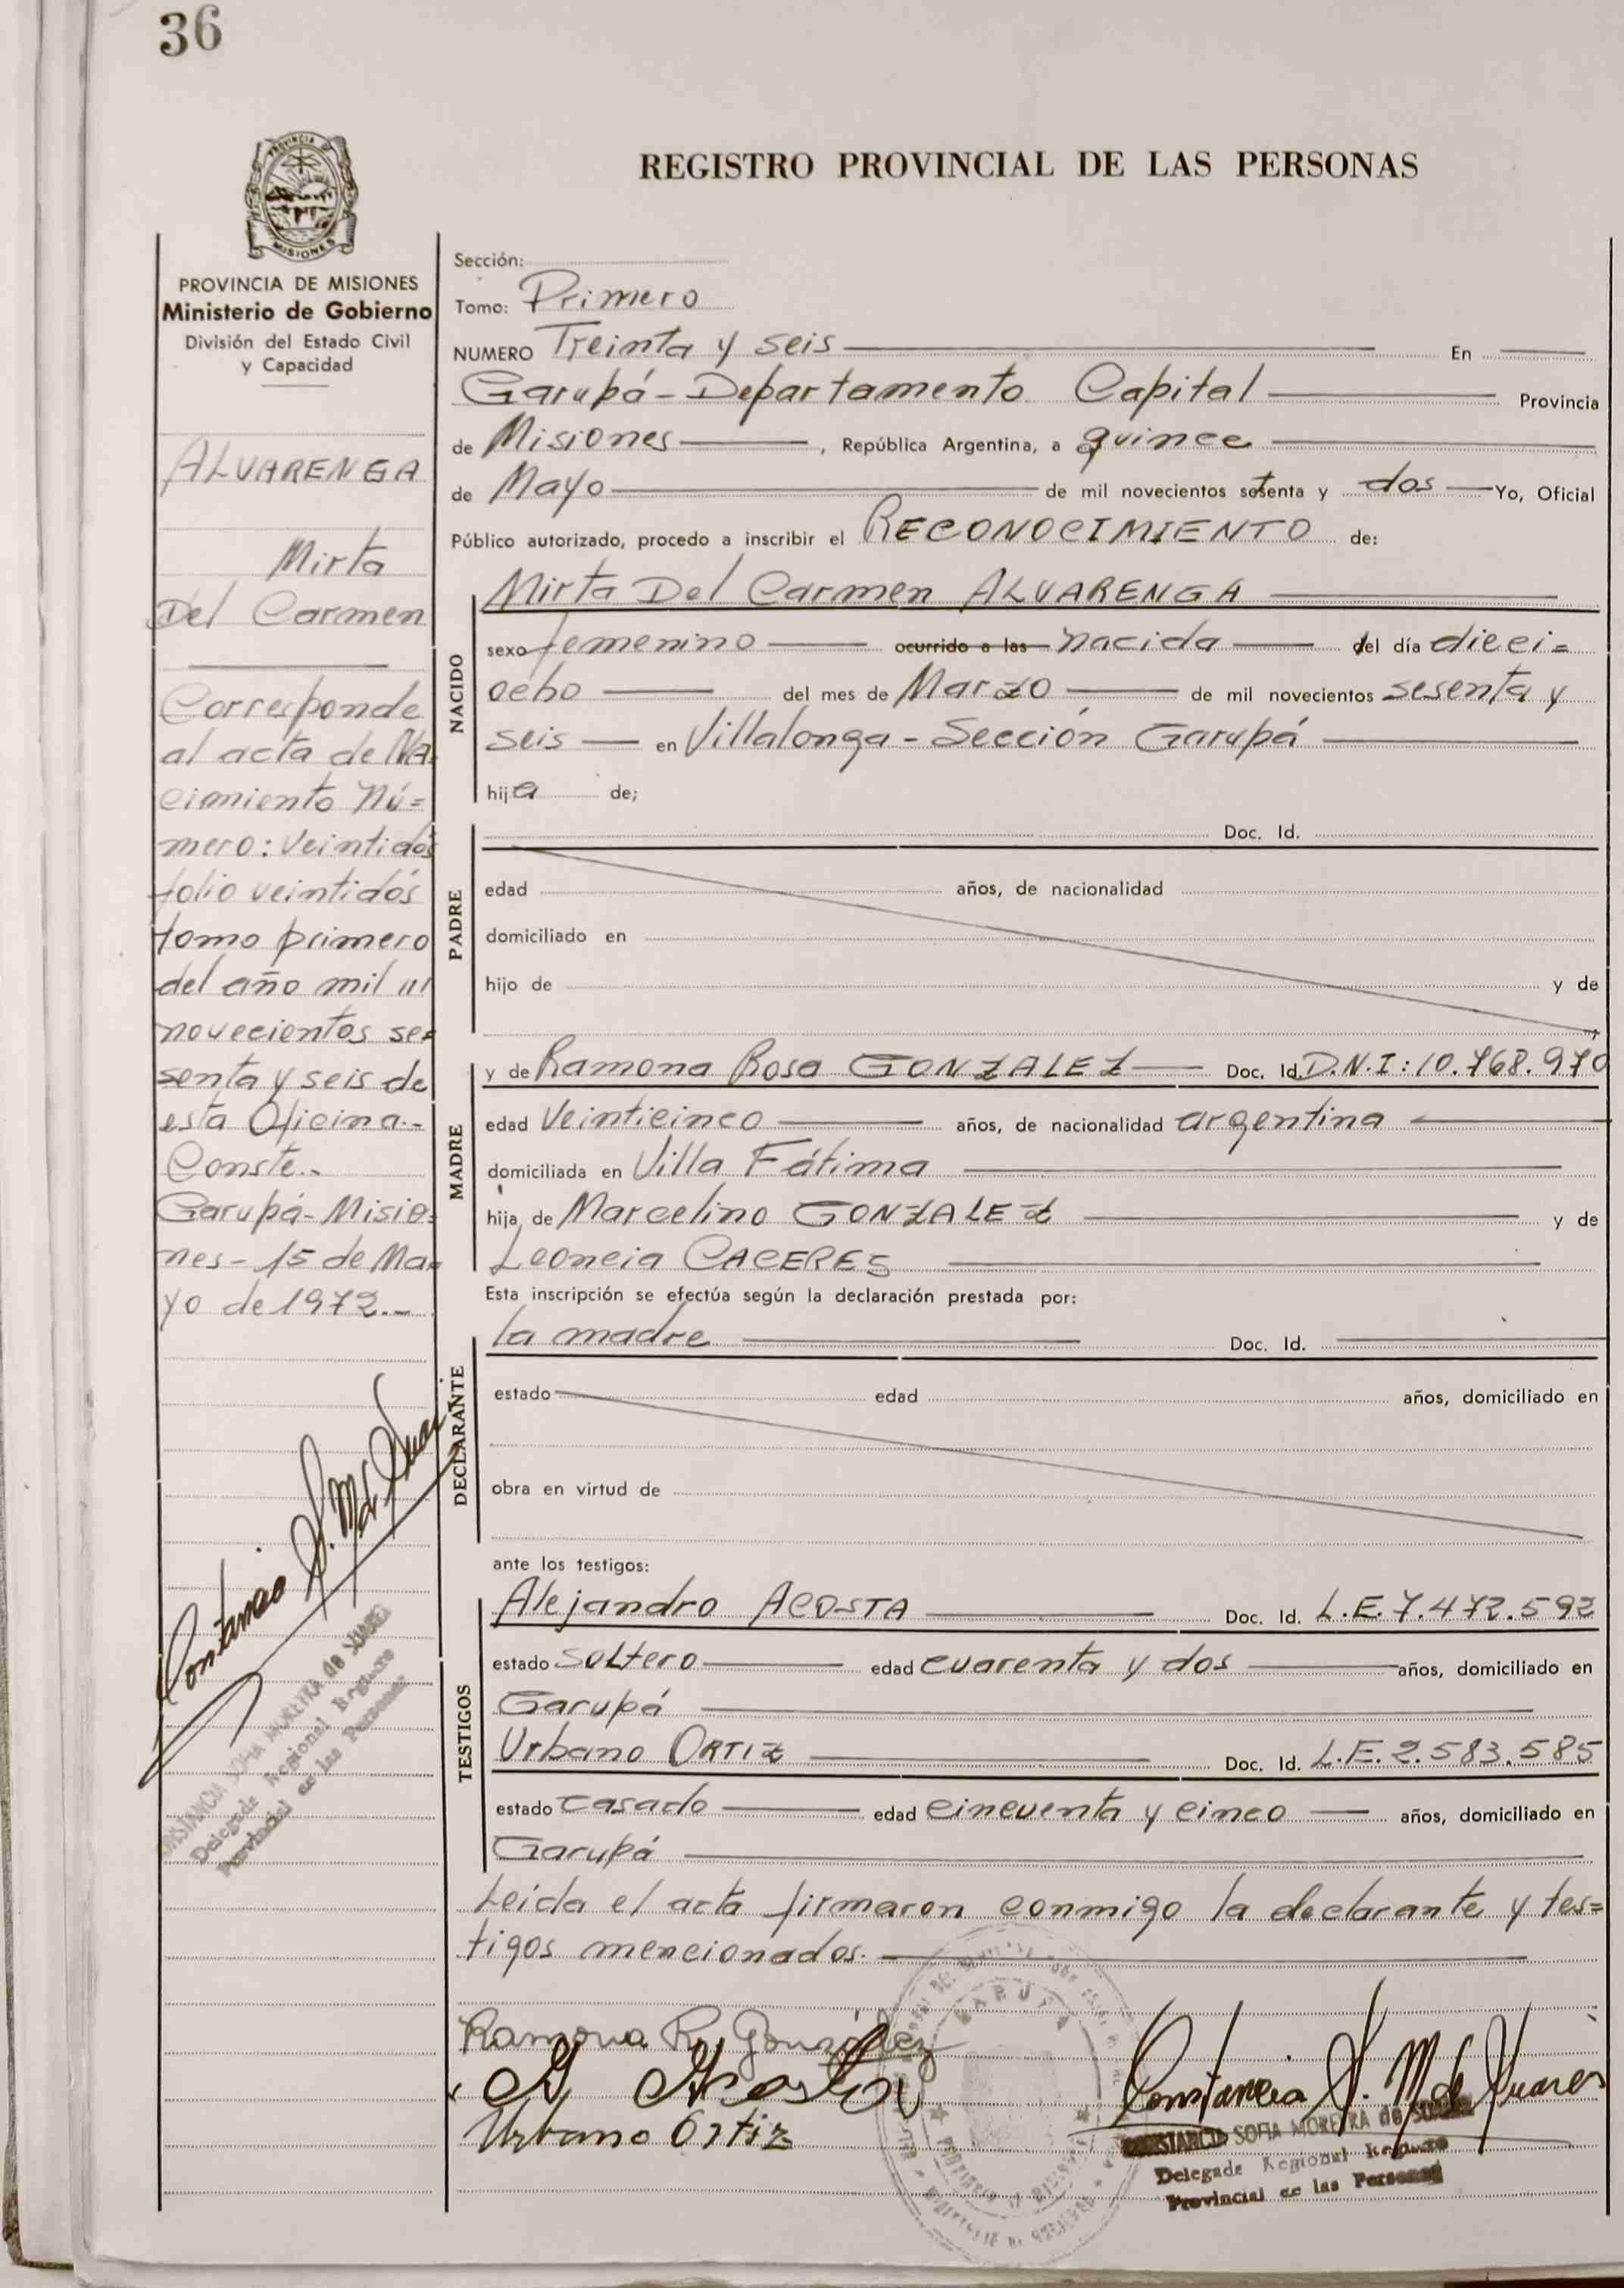 36
REGISTRO PROVINCIAL DE LAS PERSONAS
PROVINCIA DE
MISIONES
PROVINCIA DE MISIONES
Ministerio de Gobierno
División del Estado Civil
y Capacidad
ALVARENGA
Mirta
Del Carmen
Corresponde
al acta de Na-
cimiento Nú=
mero: Veintidós
folio veintidós
tomo primero
del año mil
novecientos se=
senta y seis de
esta Oficina.-
Conste.-
Garupá-Misio=
nes-15 de Ma=
yo de 1972.-
Constancia S. M. de Suarez
CONSTANCIA SOFIA MOREYRA de SUAREZ
Delegada Regional Registro
Provincial de las Personas
Sección:
Tomo: Primero
NUMERO Treinta y seis En
Garupá-Departamento Capital Provincia
de Misiones, República Argentina, a quince
de Mayo de mil novecientos setenta y dos Yo, Oficial
Público autorizado, procedo a inscribir el RECONOCIMIENTO de:
NACIDO
Mirta Del Carmen ALVARENGA
sexo femenino ocurrido a las nacida del día dieci=
ocho del mes de Marzo de mil novecientos sesenta y
seis en Villalonga - Sección Garupá
hija de;
PADRE
Doc. Id.
edad años, de nacionalidad
domiciliado en
hijo de y de
MADRE
y de Ramona Rosa GONZALEZ Doc. Id. D.N.I: 10.768.970
edad Veinticinco años, de nacionalidad argentina
domiciliada en Villa Fátima
hija de Marcelino GONZALEZ y de
Leoncia CACERES
Esta inscripción se efectúa según la declaración prestada por:
DECLARANTE
la madre Doc. Id.
estado edad años, domiciliado en
obra en virtud de
ante los testigos:
TESTIGOS
Alejandro ACOSTA Doc. Id. L.E. 7.472.592
estado soltero edad cuarenta y dos años, domiciliado en
Garupá
Urbano ORTIZ Doc. Id. L.E. 2.583.585
estado casado edad cincuenta y cinco años, domiciliado en
Garupá
Leída el acta firmaron conmigo la declarante y tes=
tigos mencionados.
Ramona R. González
A Acosta
Urbano Ortiz
Constancia S. M. de Suarez
CONSTANCIA SOFIA MOREYRA de SUAREZ
Delegada Regional Registro
Provincial de las Personas